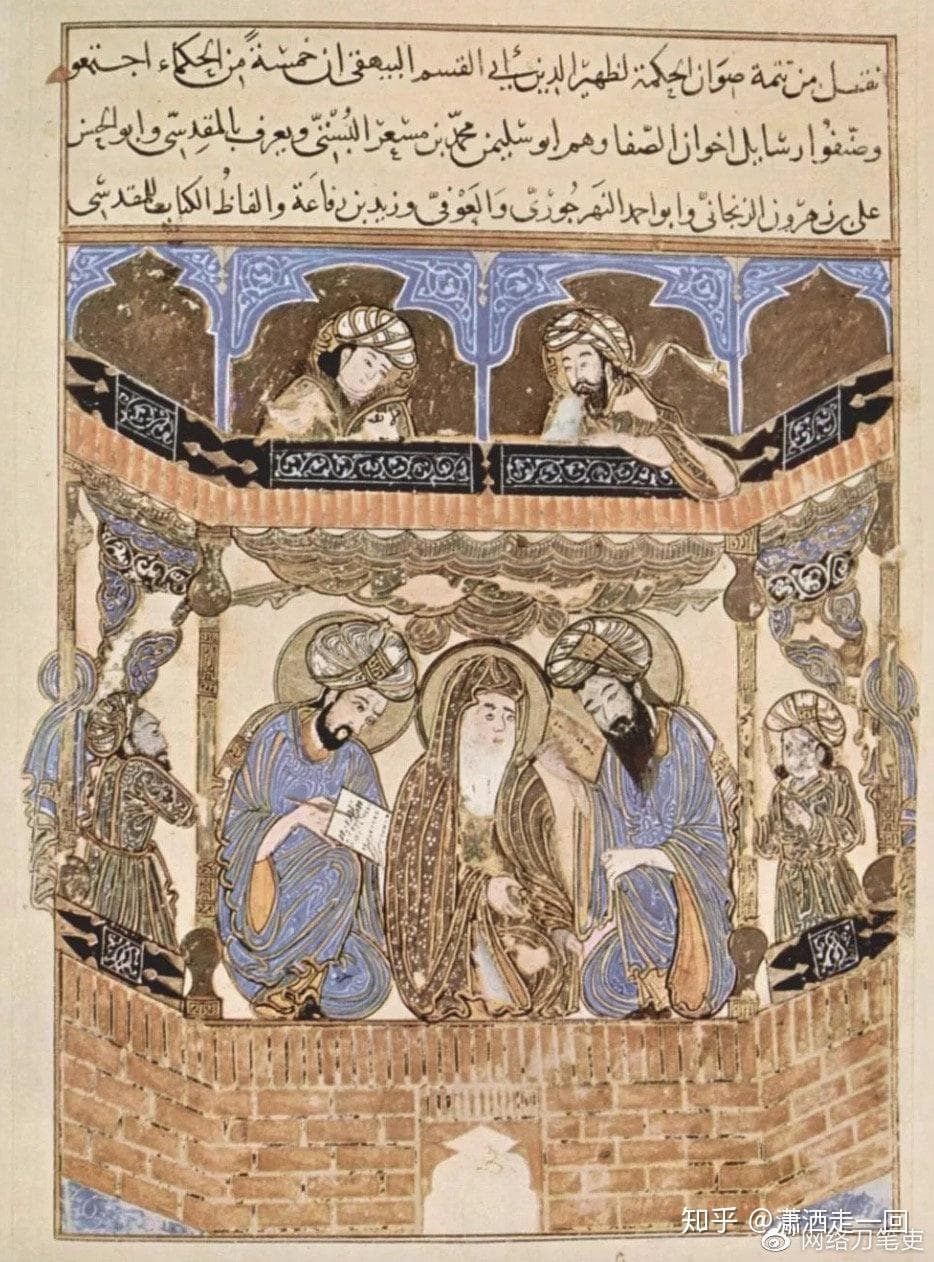 نقل من تتمة صوان الحكمة لظهير الدين أبي القسم البيهقي ان خمسة من الحكماء اجتمعوا
وصنفوا رسايل اخوان الصفا وهم ابو سليمن محمد بن مسعر البستي ويعرف بالمقدسي وابو الحسن
علي بن هرون الزنجاني وابو احمد النهرجوري والعوفي وزيد بن رفاعة والفاظ الكتاب للمقدسي
知乎 @潇洒走一回
网络刀笔吏